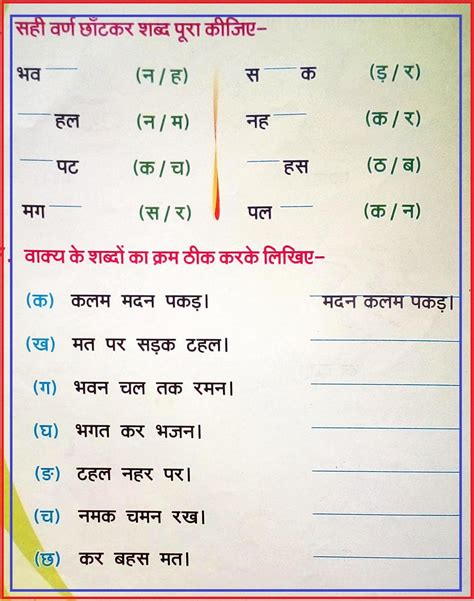 सही वर्ण छाँटकर शब्द पूरा कीजिए–
भव ____ (न / ह) स ____ क (ड़ / र)
____ हल (न / म) नह ____ (क / र)
____ पट (क / च) ____ हस (ठ / ब)
मग ____ (स / र) पल ____ (क / न)
वाक्य के शब्दों का क्रम ठीक करके लिखिए–
(क) कलम मदन पकड़। मदन कलम पकड़।
(ख) मत पर सड़क टहल।
(ग) भवन चल तक रमन।
(घ) भगत कर भजन।
(ङ) टहल नहर पर।
(च) नमक चमन रख।
(छ) कर बहस मत।